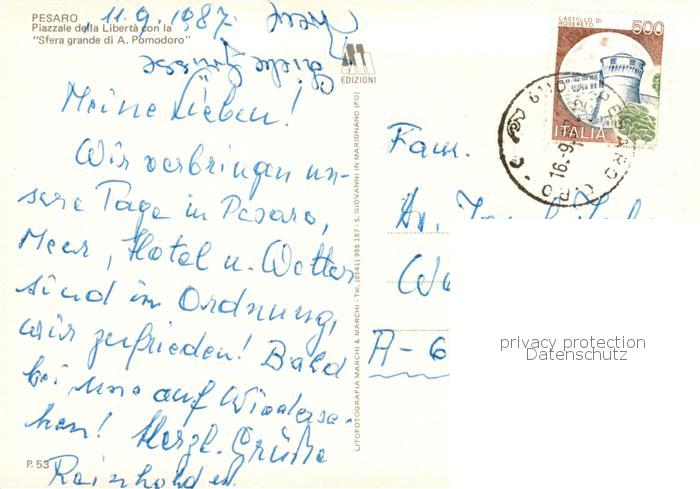 PESARO
Piazzale della Libertà con la
"Sfera grande di A. Pomodoro"
11.9.1987.
EDIZIONI
Meine Lieben!
Wir verbringen un-
sere Tage in Pesaro,
Meer, Hotel u. Wetter
sind in Ordnung,
wir zufrieden! Bald
bei uns auf Wiederse-
hen! Herzl. Grüße
Reinhold u.
P. 53
LITOFOTOGRAFIA MARCHI & MARCHI - Tel. (0541) 955 157 - S. GIOVANNI IN MARIGNANO (FO)
CASTELLO DI
ROVERETO
500
ITALIA
PESARO
16-9
Fam.
A-6
privacy protection
Datenschutz